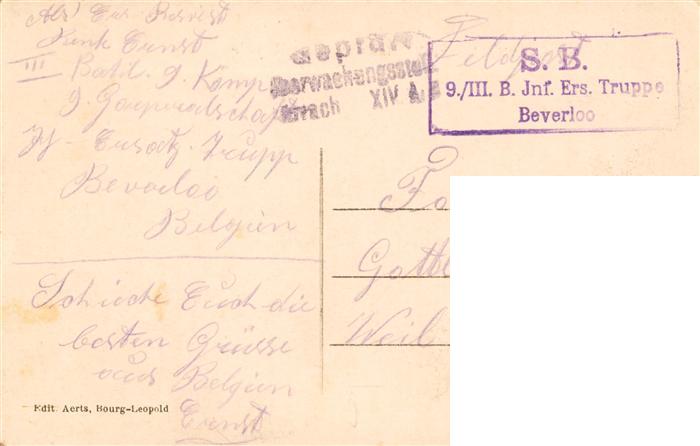 Abs. Ers. Reservist
Funk Ernst
III Batl. 9. Komp
9. Gorporalschaft
Jf-Ersatz-Trupp
Beverloo
Belgien
Schicke Euch die
besten Grüsse
aus Belgien
Ernst
Edit. Aerts, Bourg-Leopold
Geprüft
Überwachungsstelle
Lörrach XIV. A.K
Feldpost
S. B.
9./III. B. Jnf. Ers. Truppe
Beverloo
Fa
Gottl
Weil